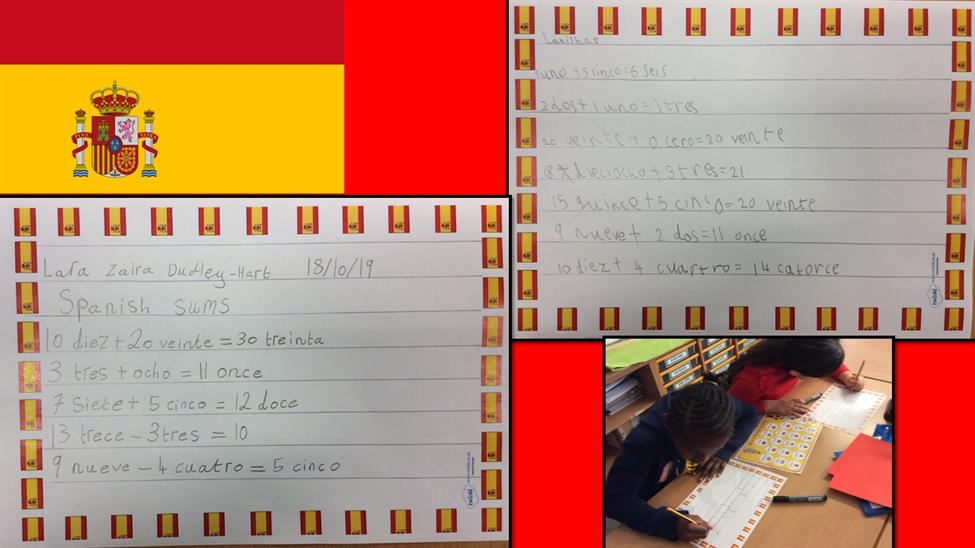 Lara Zaira Dudley-Hart 18/10/19
Spanish sums
10 diez + 20 veinte = 30 treinta
3 tres + ocho = 11 once
7 siete + 5 cinco = 12 doce
13 trece - 3 tres = 10
9 nueve - 4 cuatro = 5 cinco
1 uno + 5 cinco = 6 seis
2 dos + 1 uno = 3 tres
20 veinte + 0 cero = 20 veinte
18 dieciocho + 3 tres = 21
15 quince + 5 cinco = 20 veinte
9 nueve + 2 dos = 11 once
10 diez + 4 cuartro = 14 catorce